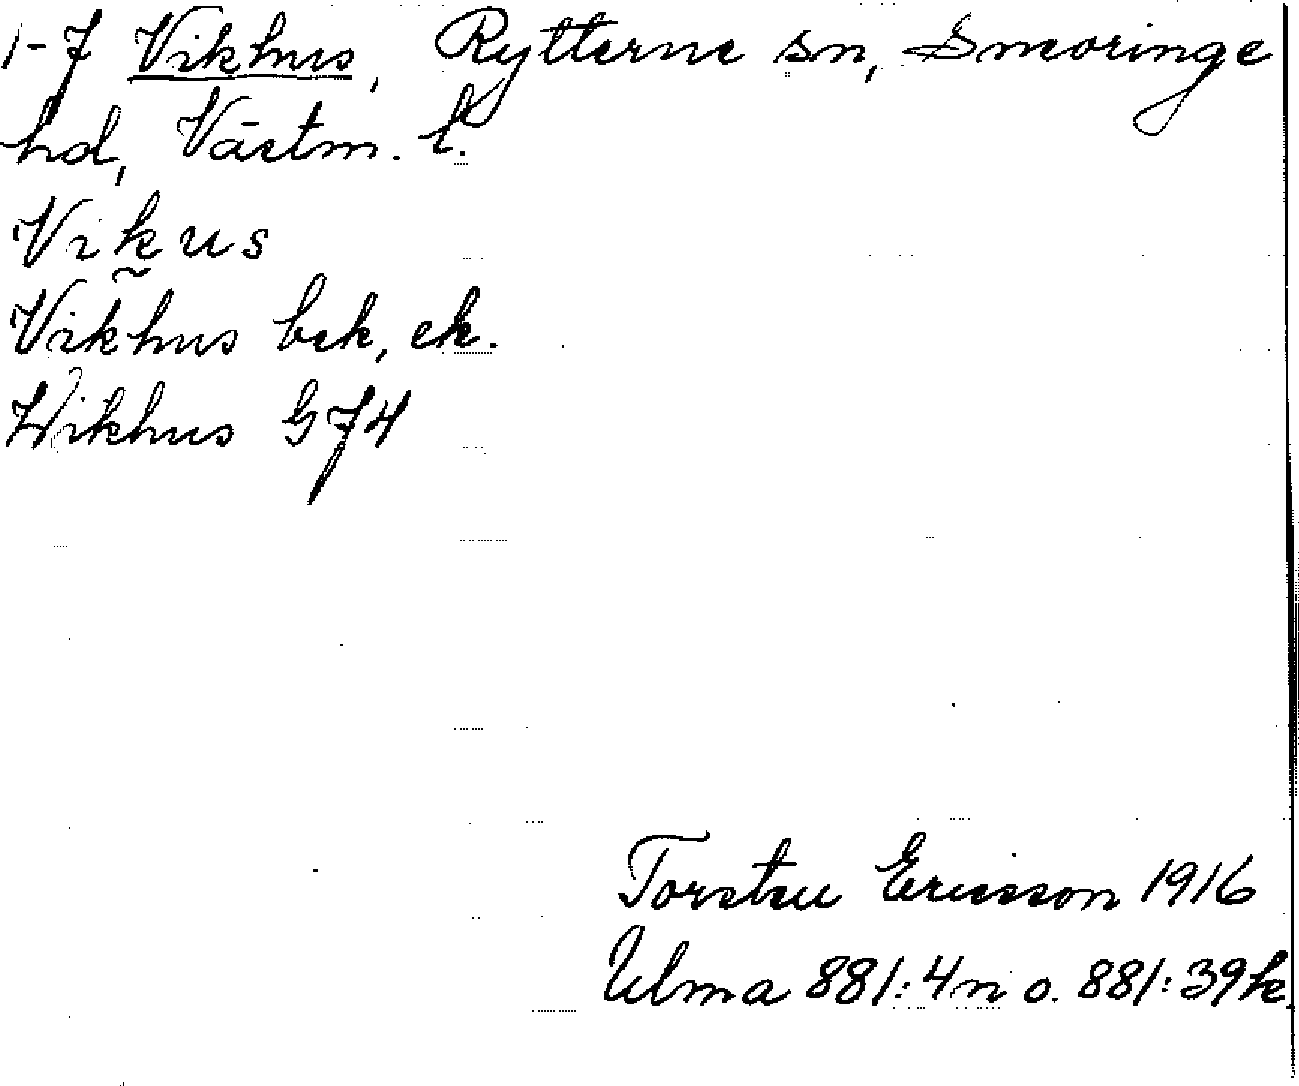 1-7 Vikhus, Rytterne sn, Snevringe
hd, Västm. l.
Vikus
Vikhus bek, ek.
Wikhus G74
Torsten Ericsson 1916
Ulma 881:4n o. 881:39k